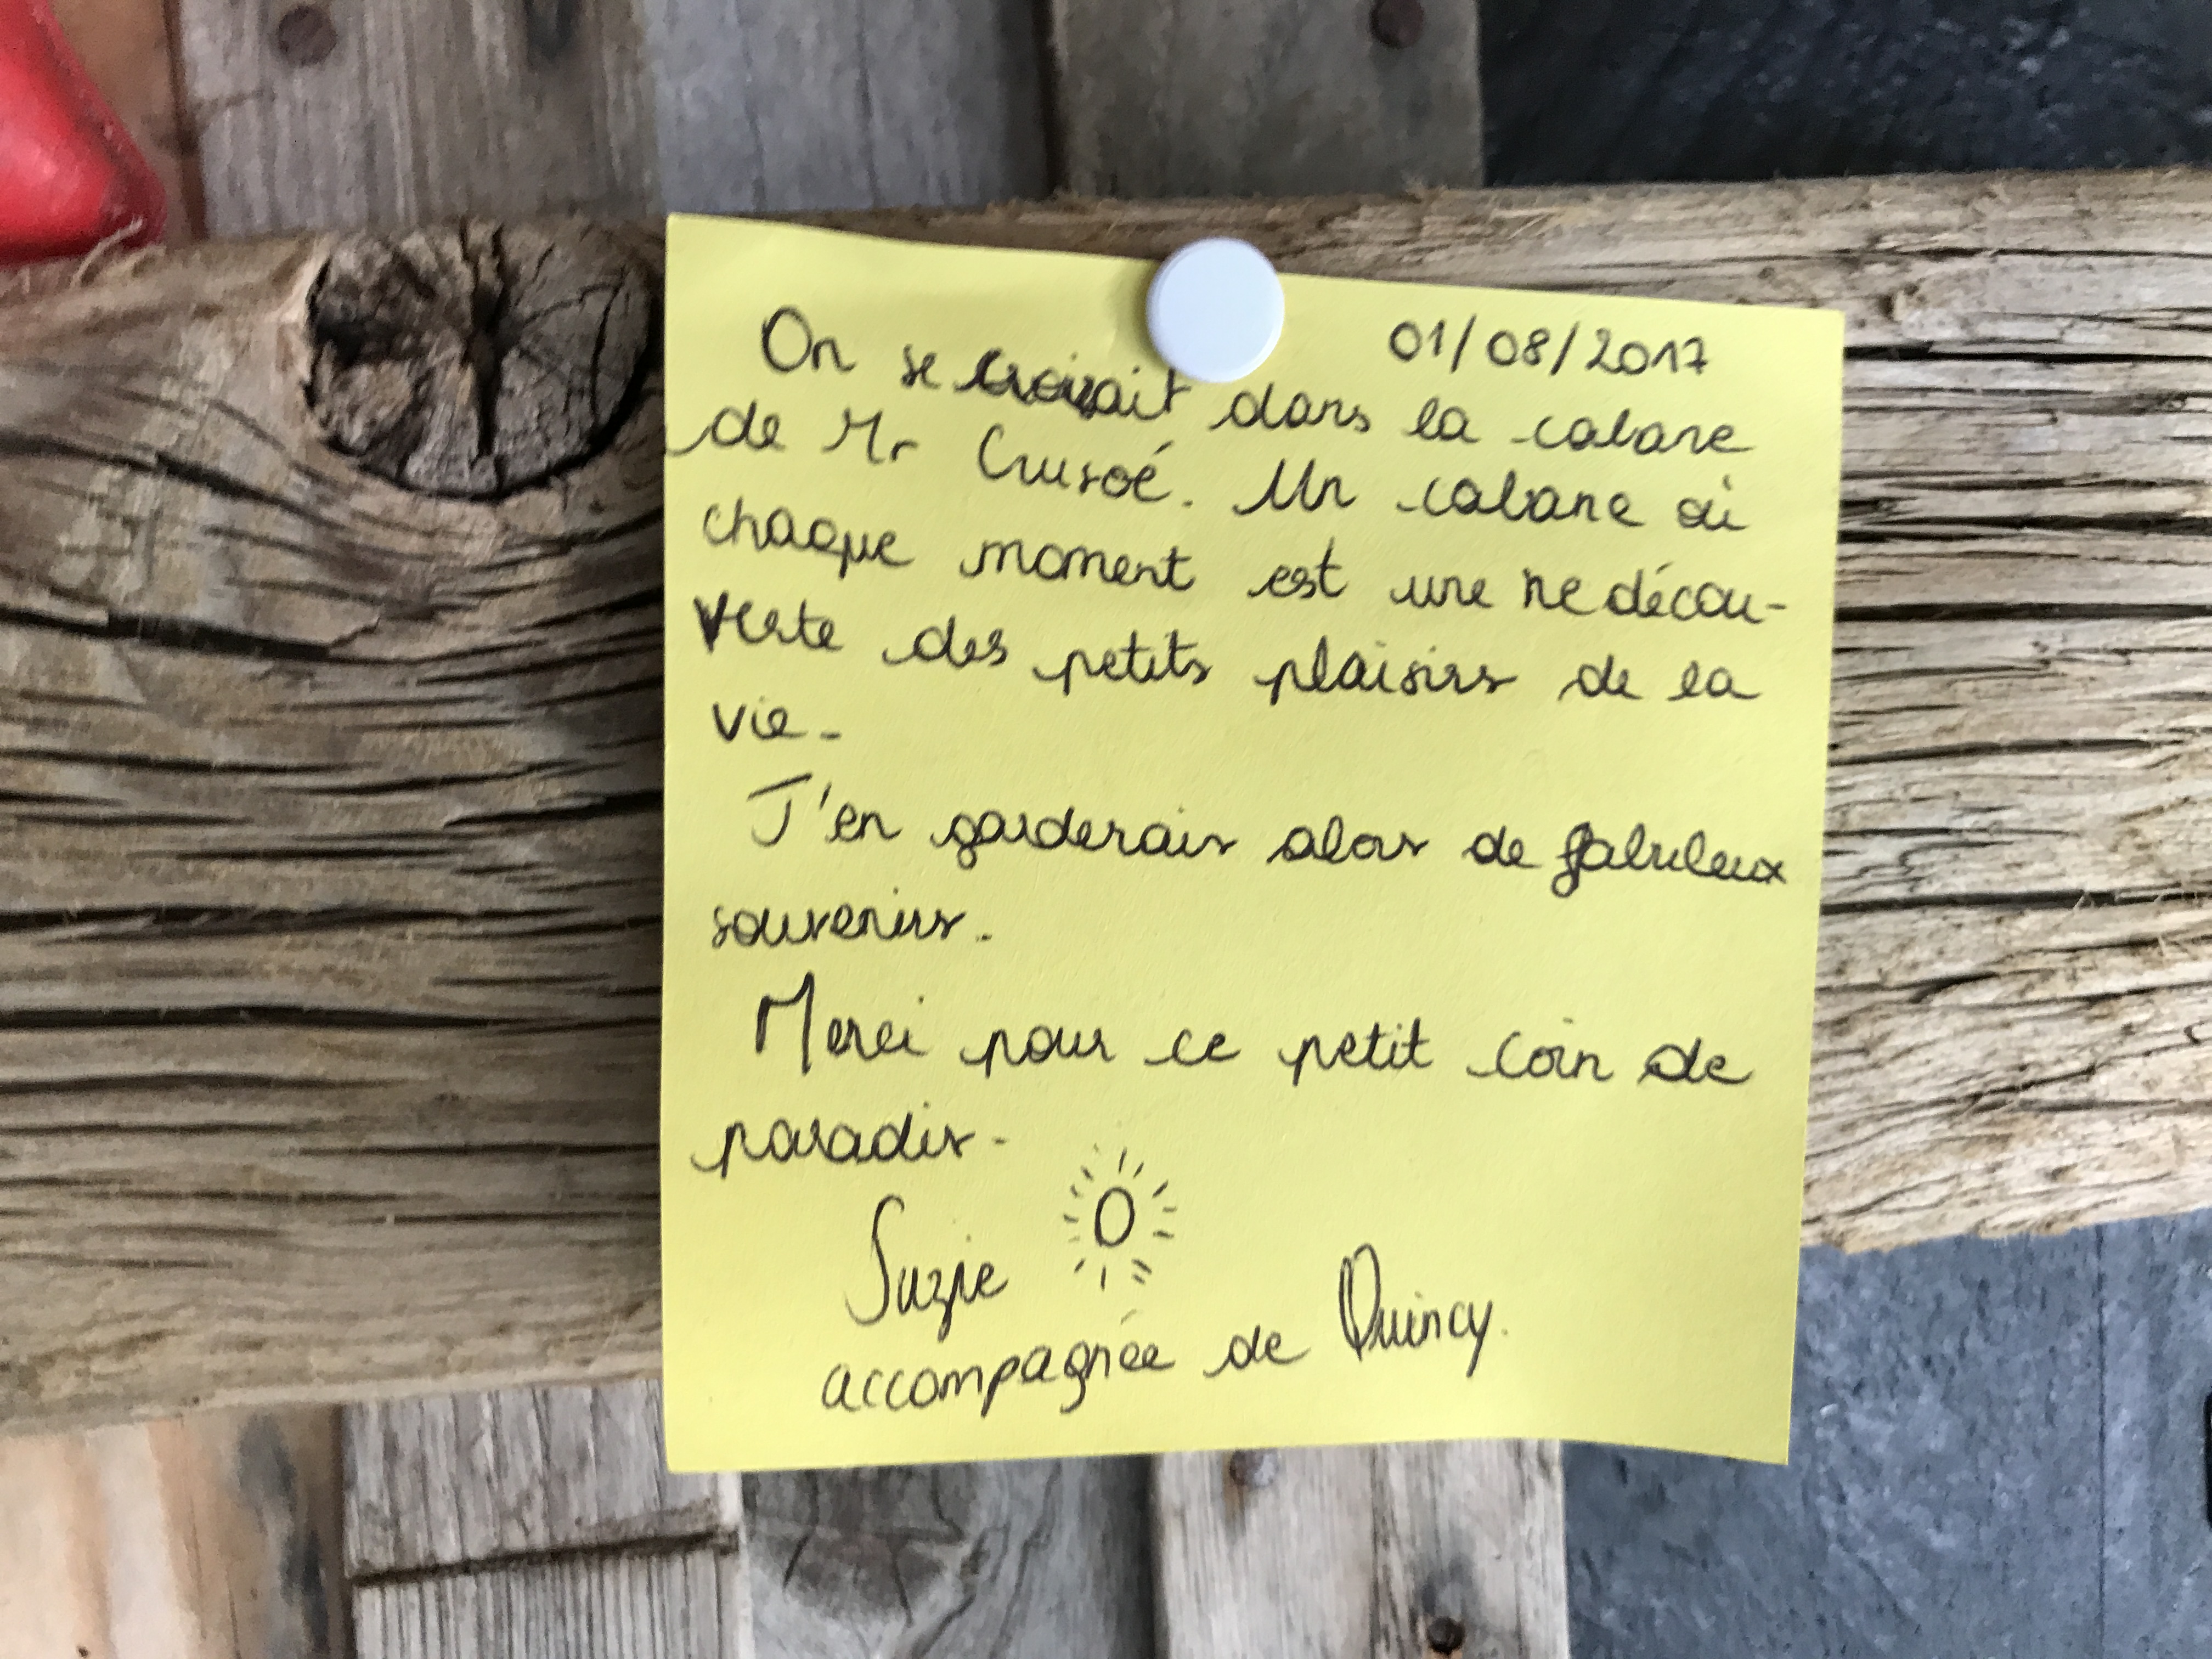 01/08/2017
On se croirait dans la cabane
de Mr Crusoé. Un cabane où
chaque moment est une redécou-
verte des petits plaisirs de la
vie.
J'en garderais alors de fabuleux
souvenirs.
Merci pour ce petit coin de
paradis.
Suzie
accompagnée de Quincy.